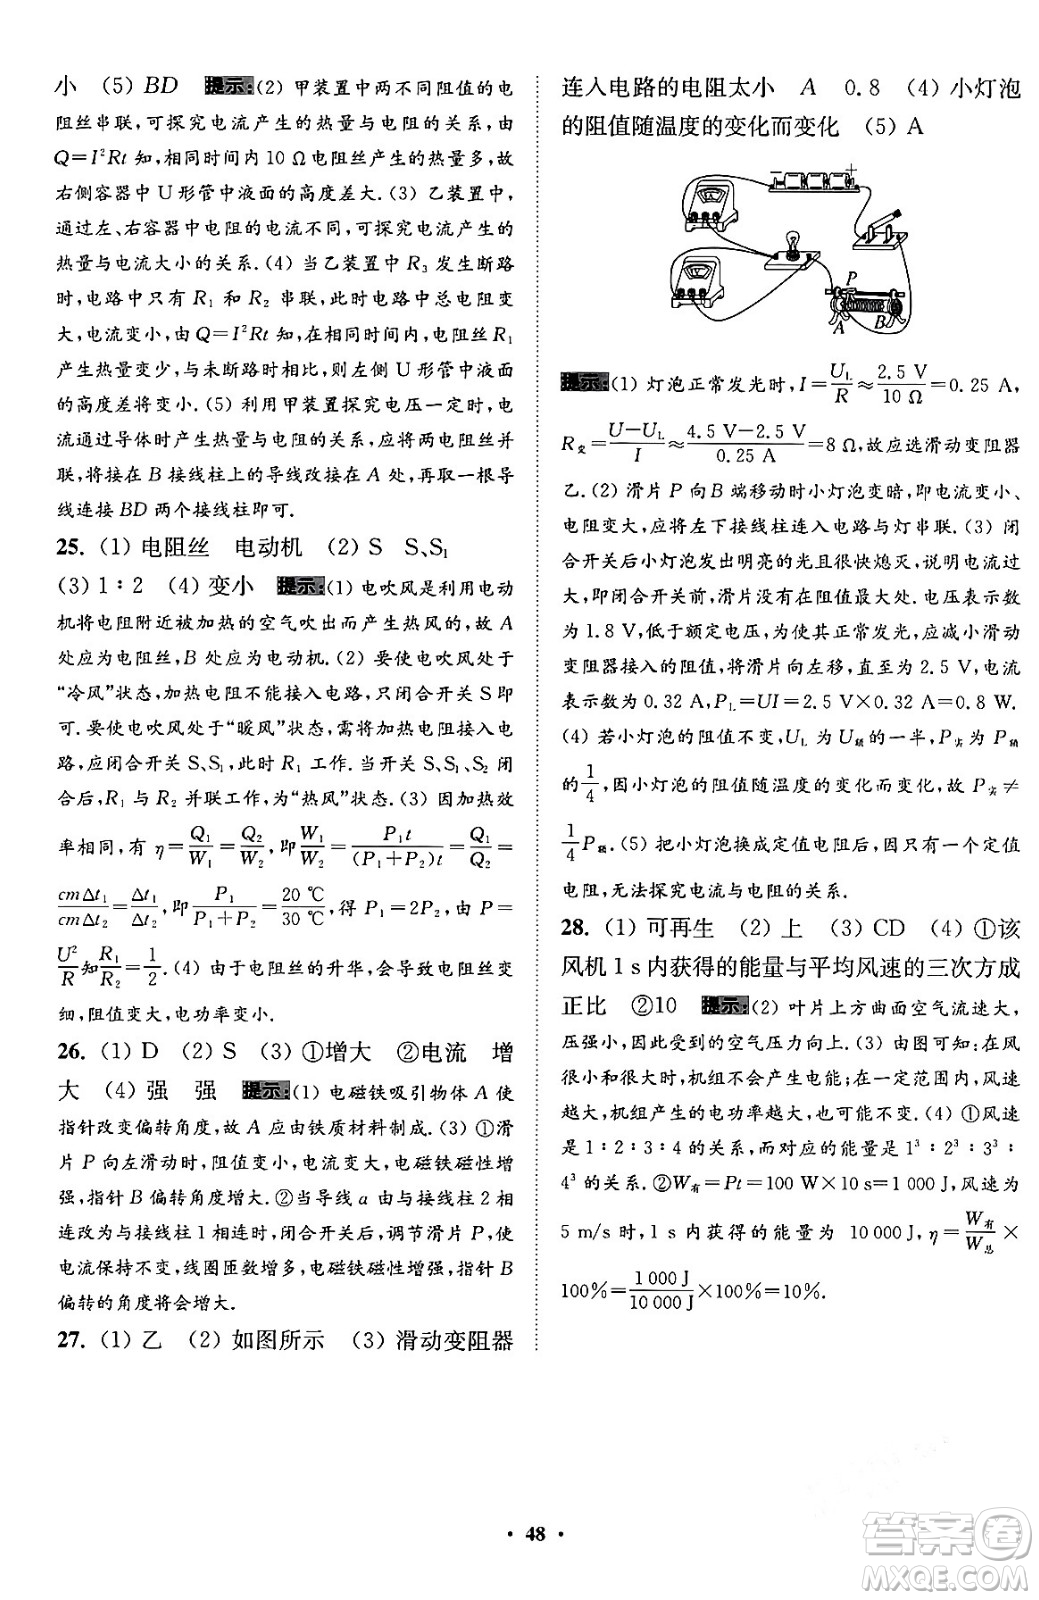 小 (5) BD 提示:(2) 甲装置中两不同阻值的电
阻丝串联,可探究电流产生的热量与电阻的关系,由
Q=I²Rt 知,相同时间内 10 Ω 电阻丝产生的热量多,故
右侧容器中 U 形管中液面的高度差大.(3) 乙装置中,
通过左、右容器中电阻的电流不同,可探究电流产生的
热量与电流大小的关系.(4) 当乙装置中 R₃ 发生断路
时,电路中只有 R₁ 和 R₂ 串联,此时电路中总电阻变
大,电流变小,由 Q=I²Rt 知,在相同时间内,电阻丝 R₁
产生热量变少,与未断路时相比,则左侧 U 形管中液面
的高度差将变小.(5) 利用甲装置探究电压一定时,电
流通过导体时产生的热量与电阻的关系,应将两电阻丝并
联,将接在 B 接线柱上的导线改接在 A 处,再用一根导
线连接 BD 两个接线柱即可.
25. (1) 电阻丝 电动机 (2) S S、S₁
(3) 1∶2 (4) 变小 提示:(1) 电吹风是利用电动
机将电阻附近被加热的空气吹出而产生热风的,故 A
处应为电阻丝,B 处应为电动机.(2) 要使电吹风处于
“冷风”状态,加热电阻不能接入电路,只闭合开关 S 即
可.要使电吹风处于“暖风”状态,需要将加热电阻接入电
路,应闭合开关 S、S₁,此时 R₁ 工作.其中,S、S₁、S₂ 均闭
合后,R₁ 与 R₂ 并联工作,为“热风”状态.(3) 因加热效
率相同,有 η=Q₁/W₁=Q₂/W₂,即 W₁/W₂=P₁t/(P₁+P₂)t=Q₁/Q₂=
cmΔt₁/cmΔt₂=Δt₁/Δt₂,即 P₁/(P₁+P₂)=20 ℃/30 ℃,得 P₁=2P₂,由 P=
U²/R 知 R₁/R₂=1/2.(4) 由于电阻丝的升华,会导致电阻丝变
细,阻值变大,电功率变小.
26. (1) D (2) S (3) ①增大 ②电流 增
大 (4) 强 强 提示:(1) 电磁铁吸引物体 A 使
指针改变偏转角度,故 A 应由铁质材料制成.(3) ①滑
片 P 向左滑动时,阻值变小,电流变大,电磁铁磁性增
强,指针 B 偏转角度增大.②当导线 a 由与接线柱 2 相
连改为与接线柱 1 相连时,闭合开关后,调节滑片 P,使
电流保持不变,线圈匝数增多,电磁铁磁性增强,指针 B
偏转的角度将会增大.
27. (1) 乙 (2) 如图所示 (3) 滑动变阻器
连入电路的电阻太小 A 0.8 (4) 小灯泡
的阻值随温度的变化而变化 (5) A
− +
V
A
P
A B
提示:(1) 灯泡正常发光时,I=U_L/R≈2.5 V/10 Ω=0.25 A,
R变=(U−U_L)/I≈(4.5 V−2.5 V)/0.25 A=8 Ω,故应选滑动变阻器
乙.(2) 滑片 P 向 B 端移动时小灯泡变暗,即电流变小、
电阻变大,应将左下接线柱连入电路与灯串联.(3) 闭
合开关后小灯泡发出明亮的光且很快熄灭,说明电流过
大,即闭合开关前,滑片没有在阻值最大处.电压表示数
为 1.8 V,低于额定电压,为使其正常发光,应减小滑动
变阻器的阻值,将滑片向左移,直至为 2.5 V,电流
表示数为 0.32 A,P_L=UI=2.5 V×0.32 A=0.8 W.
(4) 若小灯泡的阻值不变,U_L 为 U额的一半,P实 为 P额
的 1/4,因小灯泡的阻值随温度的变化而变化,故 P实≠
1/4 P额.(5) 把小灯泡换成定值电阻后,因只有一个定值
电阻,无法探究电流与电阻的关系.
28. (1) 可再生 (2) 上 (3) CD (4) ①该
风机 1 s 内获得的能量与平均风速的三次方成
正比 ②10 提示:(2) 叶片上方曲面空气流速大,
压强小,因此受到的空气压力向上.(3) 由图可知,在风
很小和很大时,机组不会产生电能;在一定范围内,风速
越大,机组产生的电功率越大,也可能不变.(4) ①风速
是 1∶2∶3∶4 的关系,而对应的能量是 1³∶2³∶3³∶
4³ 的关系.②W有=Pt=100 W×10 s=1 000 J,风速为
5 m/s 时,1 s 内获得的能量为 10 000 J,η=W有/W总×
100%=1 000 J/10 000 J×100%=10%.
· 48 ·
答案卷
MXQE.COM